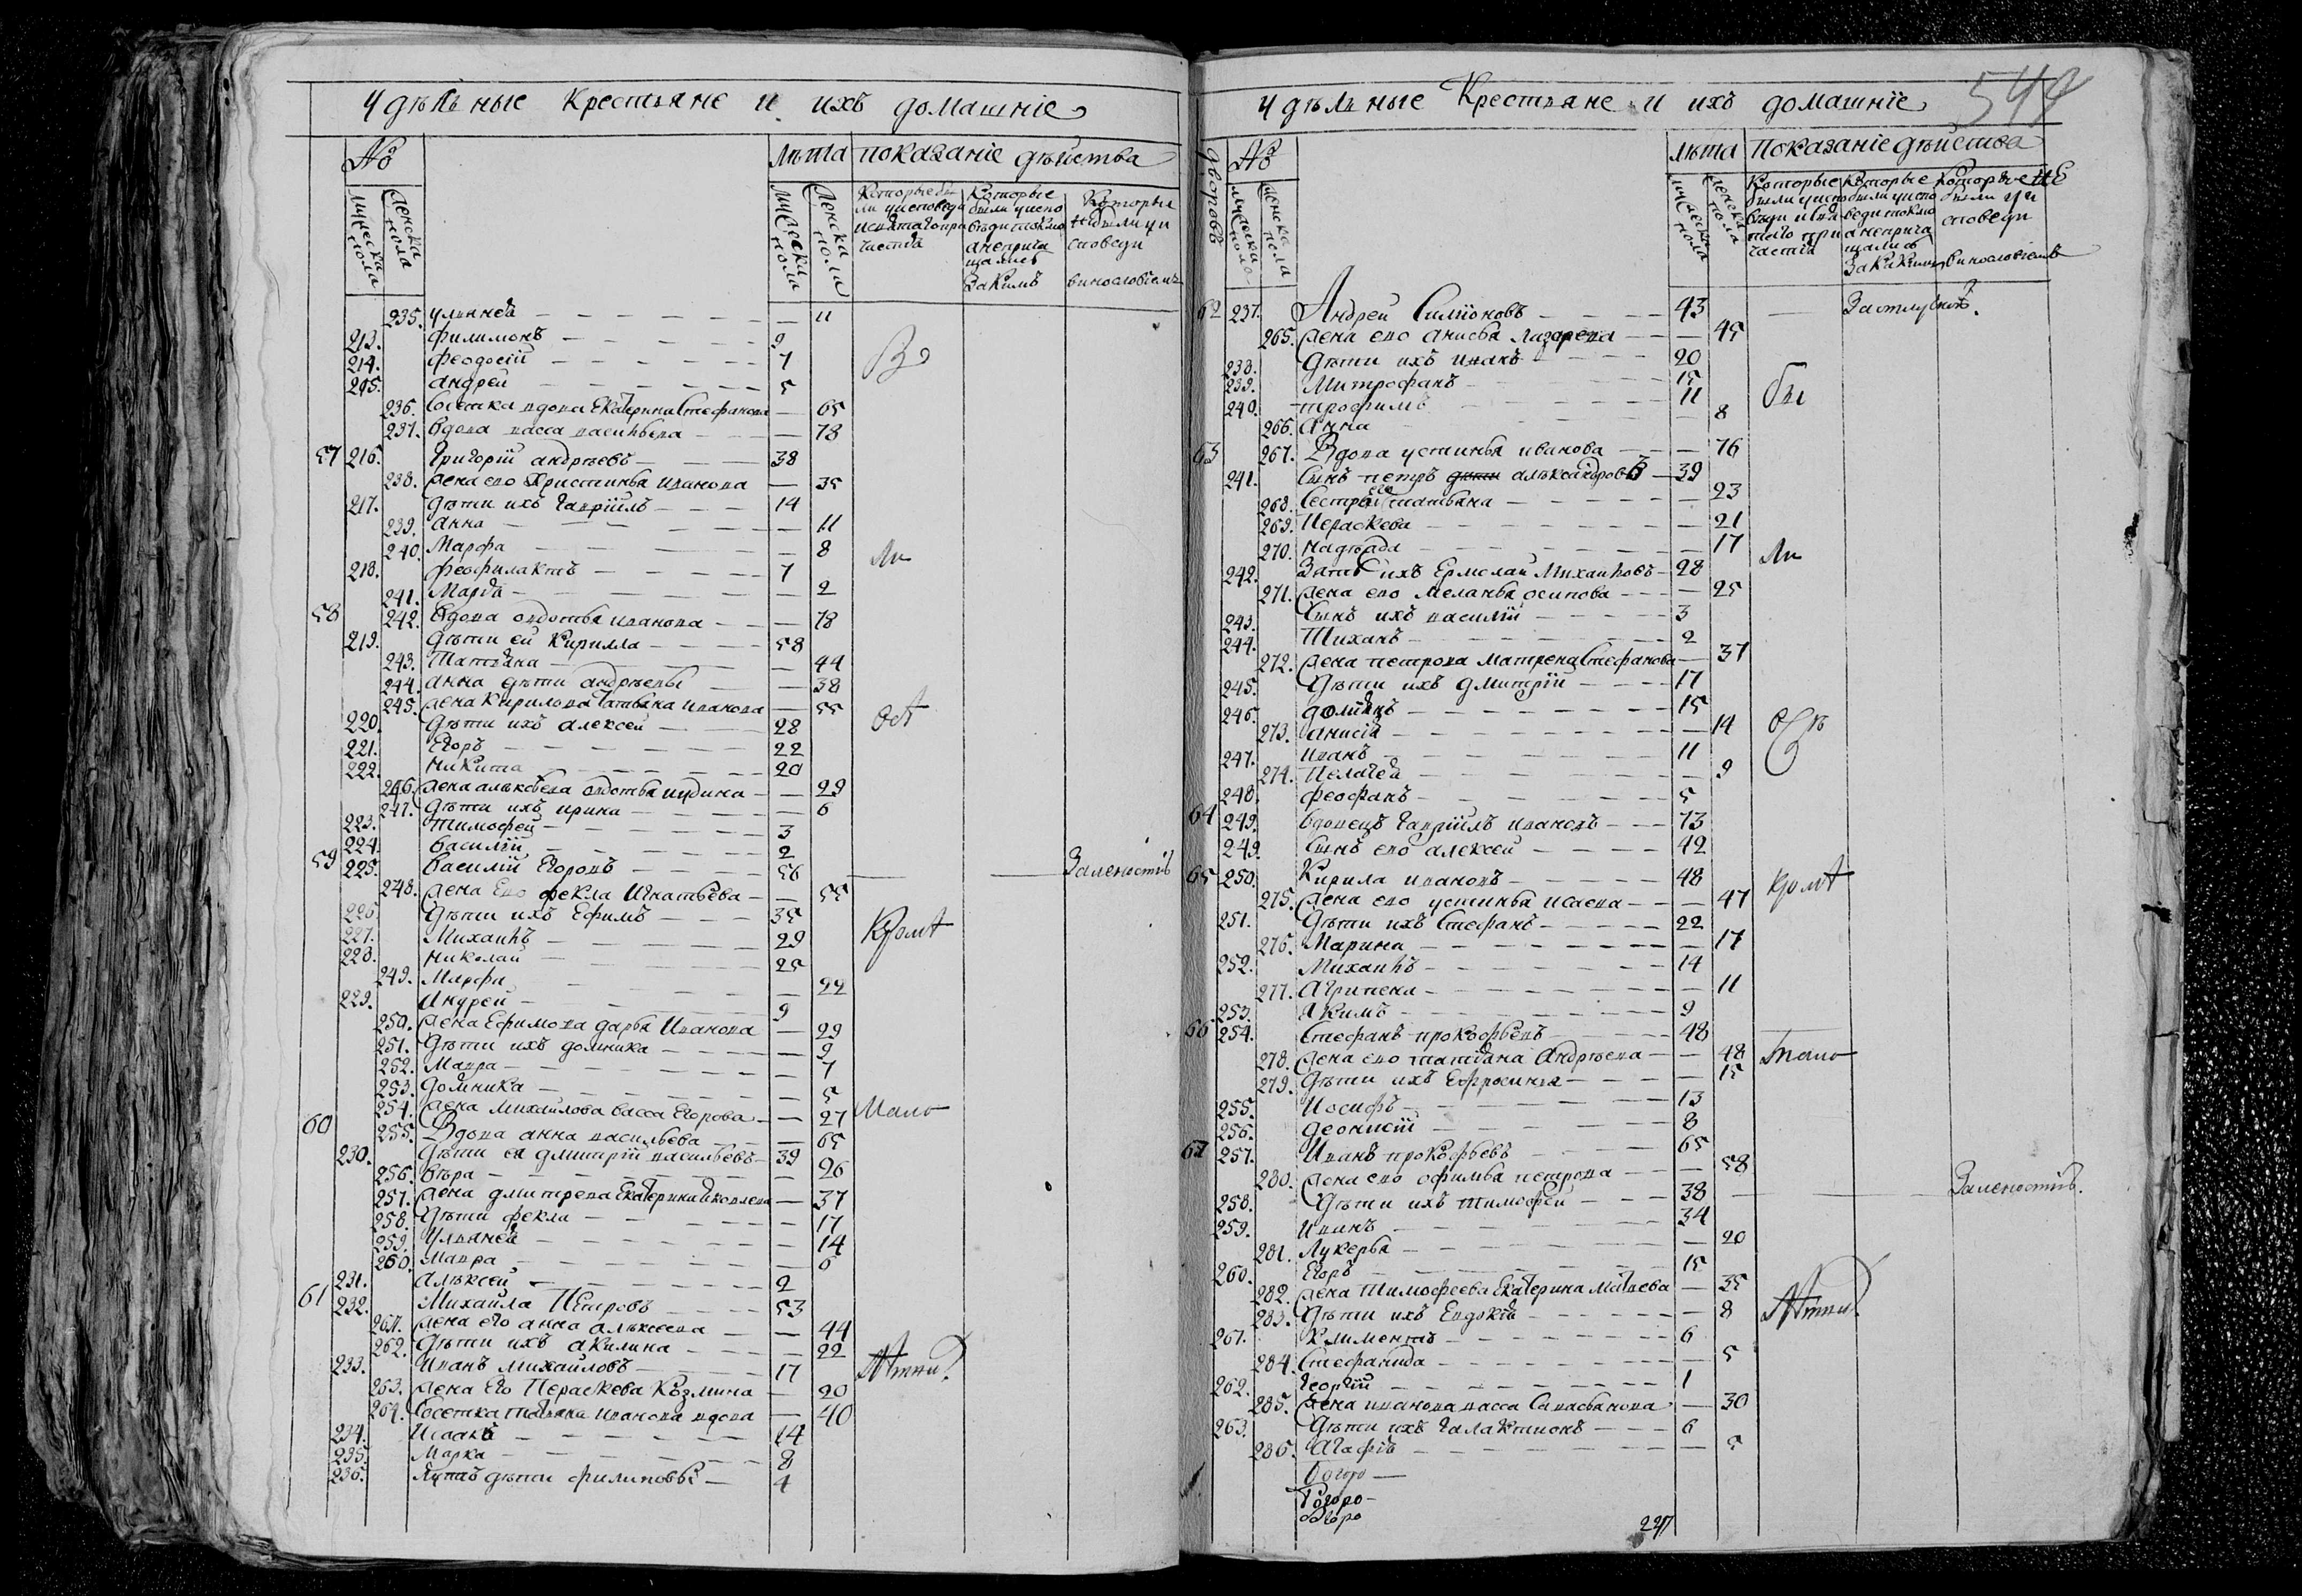 Удѣльные Крестьяне и ихъ домашніе
№
лѣта показаніе дѣйства
мужеска пола
женска пола
мужеска пола
женска пола
Которые бы
ли уисповеди
исвятагопри
частія
Которые
были уиспо
вѣди токмо
анеприча
щались
Закимъ
Которыи
небыли уи
споведи
винословіемъ
235. Ульянея — 11
213. Филимонъ — 9
214. Феодосій — 7
215. Андрей — 5
236. Сосетка вдова Екатерина Стефанова — 65
237. Вдова васса васильева — 78
57 216. Григорій андрѣевъ — 38
238. Жена его Христинья иванова — 35
217. Дѣти ихъ Гавріилъ — 14
239. Анна — 11
240. Марфа — 8
218. Феофилактъ — 7
241. Марѳа — 2
58 242. Вдова овдотья иванова — 78
219. Дѣти ей Кирилла — 58
243. Татьяна — 44
244. Анна дѣти андрѣевы — 38
245. Жена Кирилова Татьяна иванова — 55
220. Дѣти ихъ алексей — 28
221. Егоръ — 22
222. Никита — 20
246. Жена алѣксѣева овдотья — 29
247. Дѣти ихъ ирина — 6
223. Тимофей — 3
224. Василій — 2
59 225. Василій Егоровъ — 56 Заленостію
248. Жена Его фекла Игнатьева — 55
226. Дѣти ихъ Ефимъ — 35
227. Михаилъ — 29
228. Николай — 25
249. Марфа — 22
229. Андрей — 9
250. Жена Ефимова дарья Иванова — 29
251. Дѣти ихъ домника — 9
252. Мавра — 7
253. Домника — 5
254. Жена Михаилова васса Егорова — 27
60 255. Вдова анна васильева — 65
230. Дѣти ея дмитрій васильевъ — 39
256. Вѣра — 26
257. Жена дмитрева Екатерина Яковлева — 37
258. Дѣти фекла — 17
259. Ульянея — 14
260. Мавра — 6
231. Алѣксей — 2
61 232. Михайла Петровъ — 53
261. Жена его анна алѣксеева — 44
262. Дѣти ихъ акилина — 22
233. Иванъ михайловъ — 17
263. Жена Его Пераскева Козмина — 20
264. Сосетка татьяна иванова вдова — 40
234. Исаакъ — 14
235. Марка — 8
236. дѣти филиповы — 4
Удѣльные Крестьяне и ихъ домашніе
дворовъ
№
лѣта показаніе дѣйства
мужеска пола
женска пола
мужеска пола
женска пола
Которые
были уиспо
вѣди и свя
таго при
частія
Которые
были уиспо
веди токмо
анеприча
щались
Закакимъ
Которые НЕ
были уи
споведи
винословіемъ
62 237. Андрей Симіоновъ — 43
265. Жена его анисья Лазарева — 45
238. Дѣти ихъ иванъ — 20
239. Митрофанъ — 15
240. Трофимъ — 11
266. Анна — 8
63 267. Вдова устинья иванова — 76
241. Сынъ петръ алѣксандровъ — 39
268. Сестры его татьяна — 23
269. Пераскева — 21
270. Надѣжда — 17
242. Зять ихъ Ермолай Михаиловъ — 28
271. Жена его меланья осипова — 25
243. Сынъ ихъ василій — 3
244. Тиханъ — 2
272. Жена петрова матрена Стефанова — 37
245. Дѣти ихъ дмитрій — 17
246. — 15
273. Анисія — 14
247. Иванъ — 11
274. Пелагея — 9
248. Феофанъ — 5
64 249. Вдовецъ Гавріилъ ивановъ — 73
249. Сынъ его алексей — 42
65 250. Кирила ивановъ — 48
275. Жена его устинья исаева — 47
251. Дѣти ихъ Стефанъ — 22
276. Марина — 17
252. Михаилъ — 14
277. Агрипена — 11
253. Якимъ — 9
66 254. Стефанъ прокофьевъ — 48
278. Жена его татьяна андрѣева — 48
279. Дѣти ихъ Ефросинья — 15
255. Иосифъ — 13
256. Деонисій — 8
67 257. Иванъ прокофьевъ — 65
280. Жена его офимья петрова — 58
258. Дѣти ихъ тимофей — 38 Заленостію.
259. Иванъ — 34
281. Лукерья — 20
260. Егоръ — 15
282. Жена Тимофеева Екатерина Матвеева — 35
283. Дѣти ихъ Евдокія — 8
261. Климентъ — 6
284. Стефанида — 5
262. Георгій — 1
285. Жена иванова васса Савастьянова — 30
263. Дѣти ихъ Галактионъ — 6
286. Агафія — 5